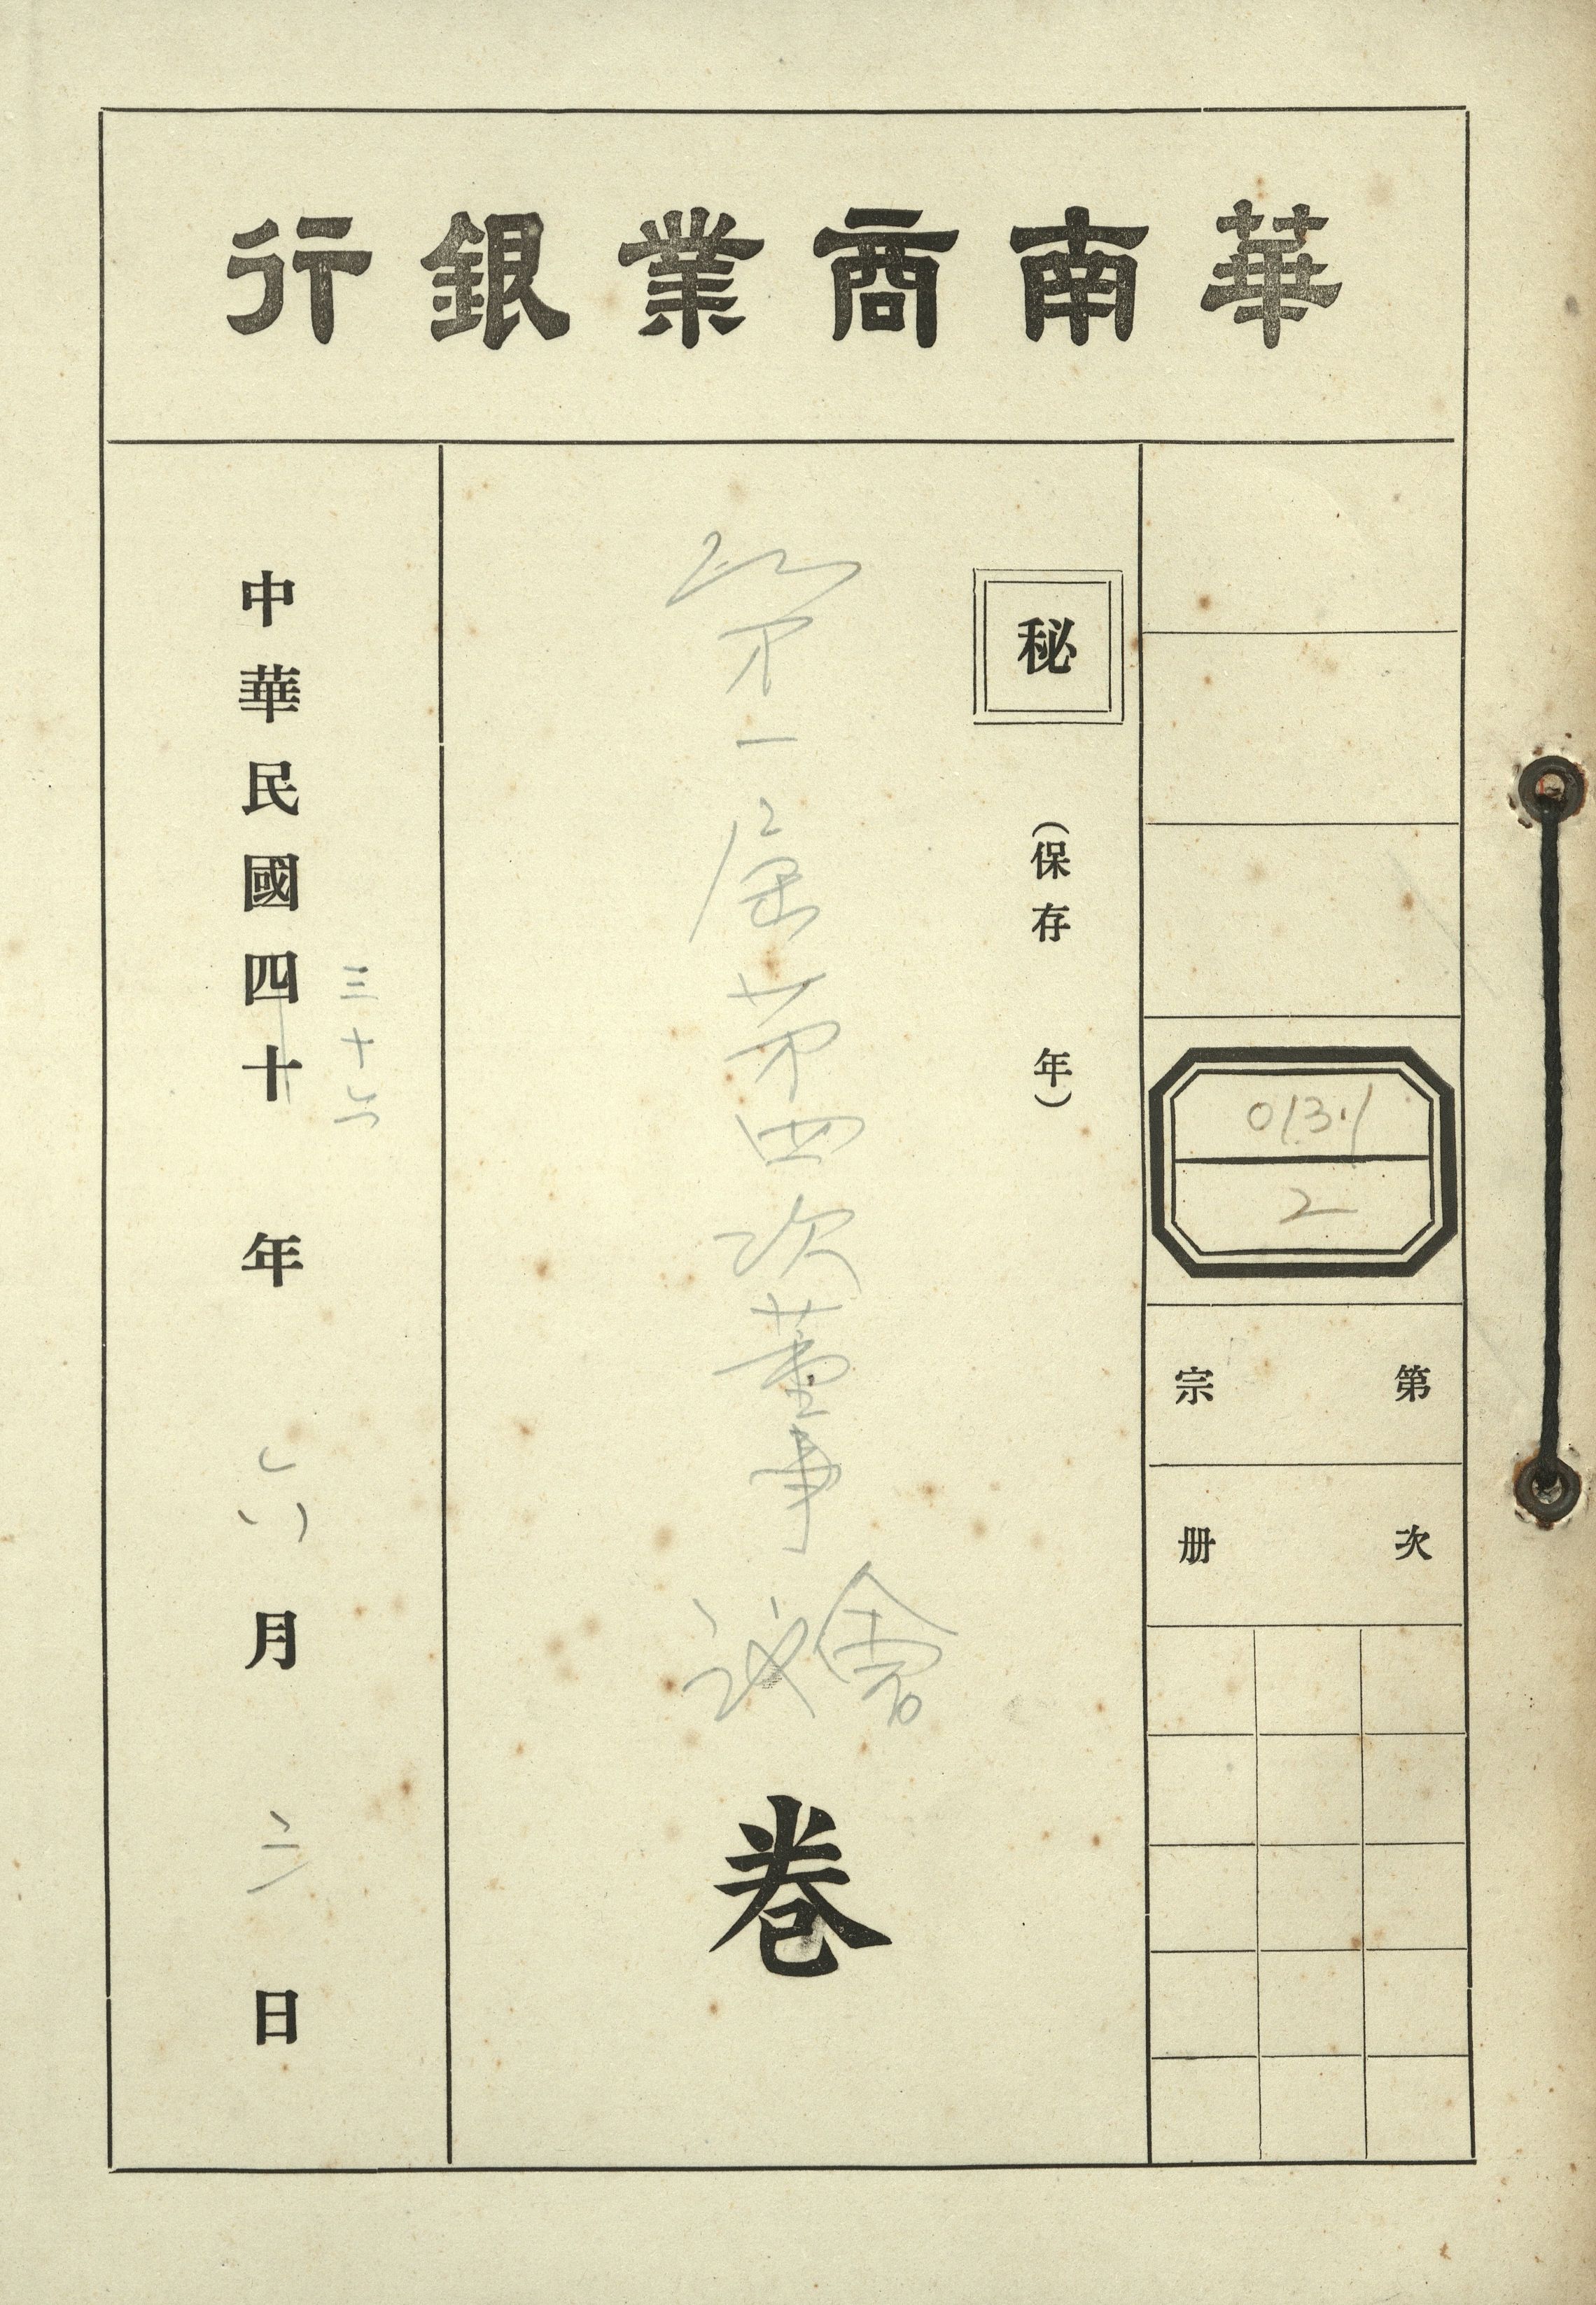 華南商業銀行
013.1
2
第 宗
次 册
秘
(保存 年)
第一屆第四次董事會議卷
三十六
中華民國四十 年 六月 日